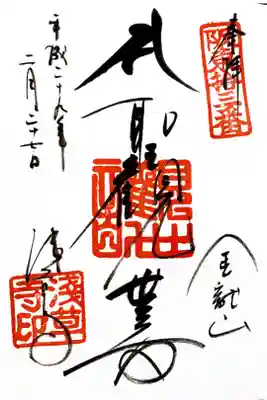 奉拝
阪東第拾三番
金龍山
聖観世音
平成二十九年
二月二十七日
浅草寺
浅草寺印